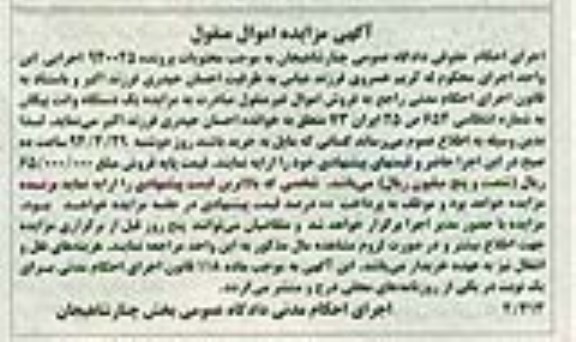 آگهی مزایده اموال منقول
اجرای احکام حقوقی دادگاه عمومی چنارشاهیجان به موجب محتویات پرونده ۹۴۰۰۲۵ اجرایی این
واحد اجرای محکوم له کریم خسروی فرزند عباس به طرفیت احسان حیدری فرزند اکبر و باستناد به
قانون اجرای احکام مدنی راجع به فروش اموال غیرمنقول مبادرت به مزایده یک دستگاه وانت پیکان
به شماره انتظامی ۶۵۴ ص ۲۵ ایران ۷۳ متعلق به خوانده احسان حیدری فرزند اکبر می‌نماید. لذا
بدین وسیله به اطلاع عموم می‌رساند کسانی که مایل به خرید باشند روز دوشنبه ساعت ده
صبح در این اجرا حاضر و قیمتهای پیشنهادی خود را ارایه نمایند. قیمت پایه فروش مبلغ ۶۵/۰۰۰/۰۰۰
ریال (شصت و پنج میلیون ریال) می‌باشد. شخصی که بالاترین قیمت پیشنهادی را ارایه نماید برنده
مزایده خواهد بود و موظف به پرداخت ده درصد قیمت پیشنهادی در جلسه مزایده خواهد بود.
مزایده با حضور مدیر اجرا برگزار خواهد شد و متقاضیان می‌توانند پنج روز قبل از برگزاری مزایده
جهت اطلاع بیشتر و در صورت لزوم مشاهده مال مذکور به این واحد مراجعه نمایند. هزینه‌های نقل و
انتقال نیز به عهده خریدار می‌باشد. این آگهی به موجب ماده ۱۱۸ قانون اجرای احکام مدنی برای
یک نوبت در یکی از روزنامه‌های محلی درج و منتشر می‌گردد.
اجرای احکام مدنی دادگاه عمومی بخش چنارشاهیجان